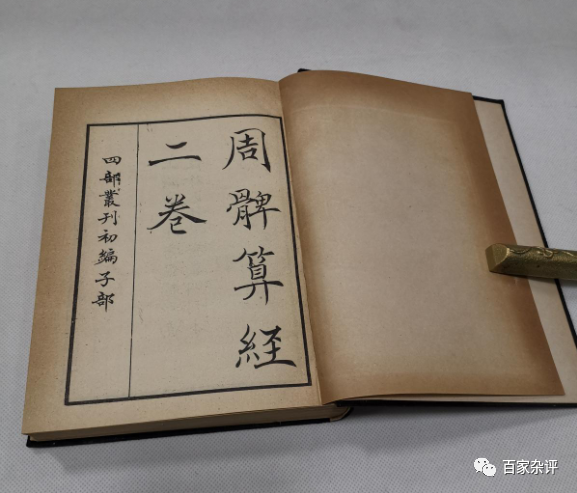 周髀算経
二卷
四部叢刊初編子部
百家杂评